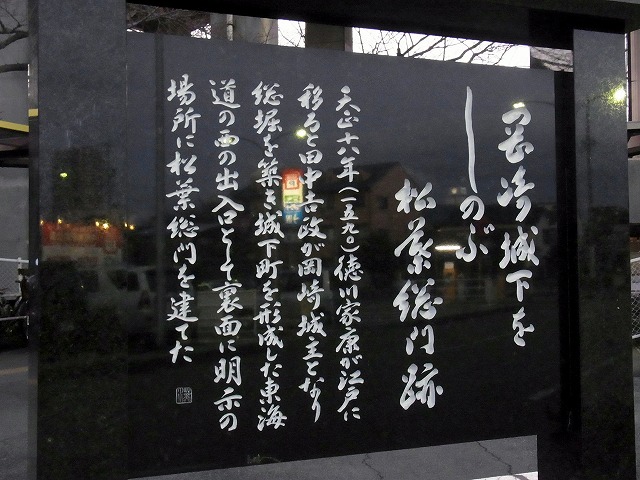 岡崎城下を
しのぶ
松葉総門跡
天正十八年(一五九〇)徳川家康が江戸に
移ると田中吉政が岡崎城主となり
総堀を築き城下町を形成した東海
道の西の出入口として裏面に明示の
場所に松葉総門を建てた